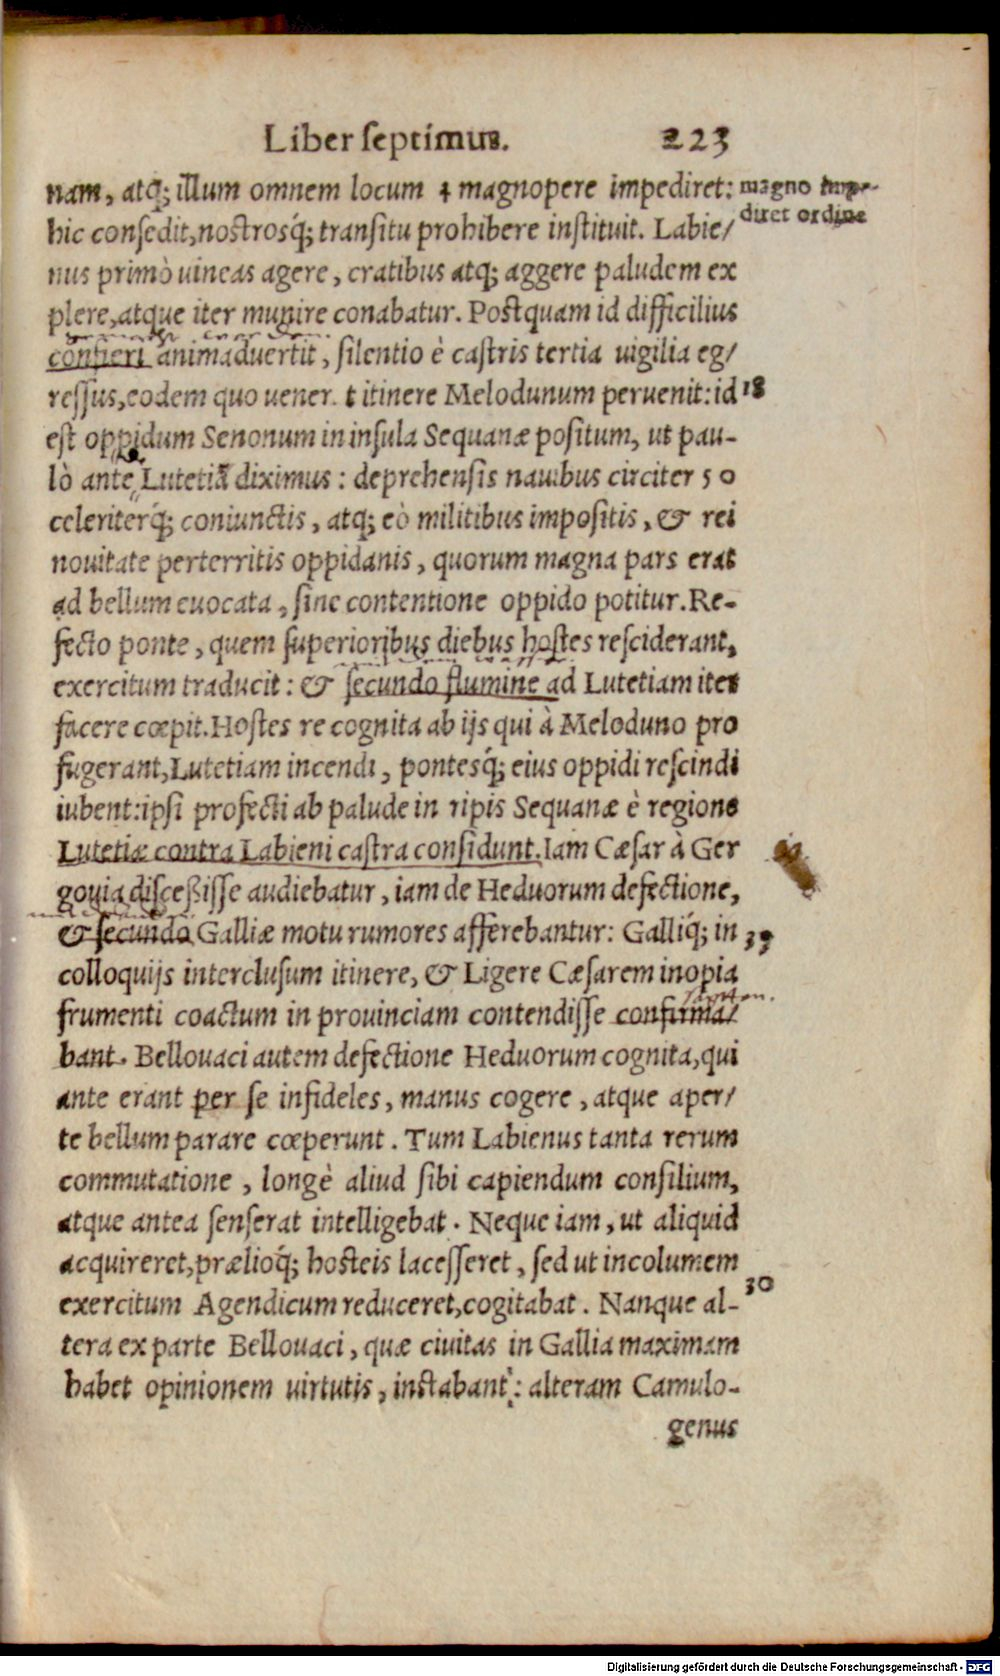 Liber septimus. 223
nam, atq; illum omnem locum 4 magnopere impediret:
magno impe-
diret ordine
hic consedit, nostrosq́; transitu prohibere instituit. Labie/
nus primò uineas agere, cratibus atq; aggere paludem ex
plere, atque iter munire conabatur. Postquam id difficilius
confieri animaduertit, silentio è castris tertia uigilia eg/
ressus, eodem quo uener t itinere Melodunum peruenit: id 18
est oppidum Senonum in insula Sequanæ positum, ut pau-
lò ante Lutetiã diximus: deprehensis nauibus circiter 50
celeriterq́; coniunctis, atq; eò militibus impositis, & rei
nouitate perterritis oppidanis, quorum magna pars erat
ad bellum euocata, sine contentione oppido potitur. Re-
fecto ponte, quem superioribus diebus hostes resciderant,
exercitum traducit: & secundo flumine ad Lutetiam iter
facere cœpit. Hostes re cognita ab ijs qui à Meloduno pro
fugerant, Lutetiam incendi, pontesq́; eius oppidi rescindi
iubent: ipsi profecti ab palude in ripis Sequanæ è regione
Lutetiæ contra Labieni castra considunt. Iam Cæsar à Ger
gouia disceßisse audiebatur, iam de Heduorum defectione,
& secundo Galliæ motu rumores afferebantur: Galliq́; in
colloquijs interclusum itinere, & Ligere Cæsarem inopia
frumenti coactum in prouinciam contendisse confirma/
bant. Bellouaci autem defectione Heduorum cognita, qui
ante erant per se infideles, manus cogere, atque aper/
te bellum parare cœperunt. Tum Labienus tanta rerum
commutatione, longè aliud sibi capiendum consilium,
atque antea senserat intelligebat. Neque iam, ut aliquid
acquireret, prælioq́; hosteis lacesseret, sed ut incolumem
30
exercitum Agendicum reduceret, cogitabat. Nanque al-
tera ex parte Bellouaci, quæ ciuitas in Gallia maximam
habet opinionem uirtutis, instabant: alteram Camulo-
genus
Digitalisierung gefördert durch die Deutsche Forschungsgemeinschaft - DFG